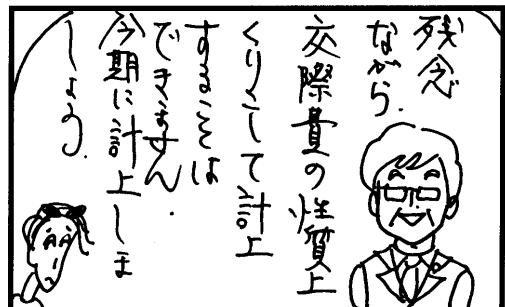 残念
ながら.
交際費の性質上
くりこして計上
することは
できません.
今期に計上しま
しょう.